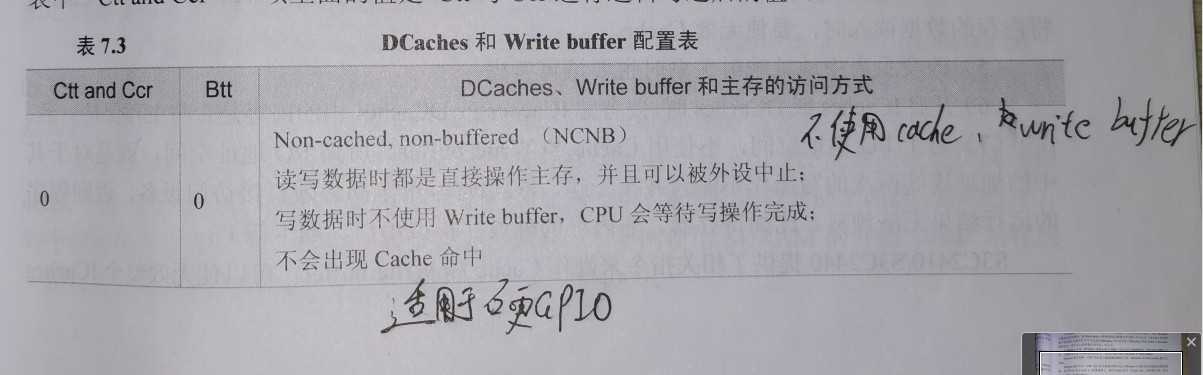 表 7.3 DCaches 和 Write buffer 配置表
Ctt and Ccr Btt DCaches、Write buffer 和主存的访问方式
Non-cached, non-buffered （NCNB） 不使用 cache、write buffer
读写数据时都是直接操作主存，并且可以被外设中止；
0 0 写数据时不使用 Write buffer，CPU 会等待写操作完成；
不会出现 Cache 命中
适用于硬GPIO